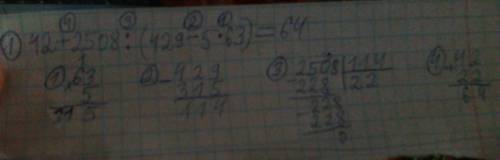 ④ ③ ② ①
① 42+2508:(429-5·63)=64
① 63 ② -429 ③ 2508|114 ④ 42
5 315 228 22 22
315 114 -228 64
228
0